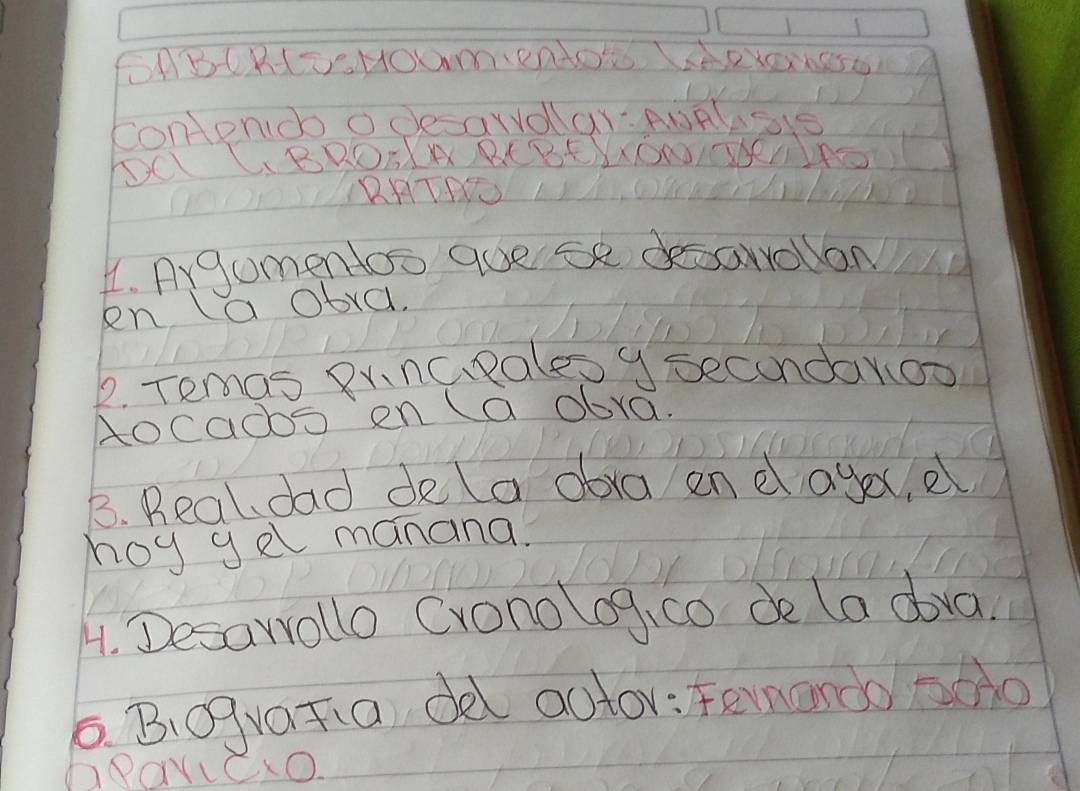 SABERES: Movimientos Literarios
Contenido a desarrollar: ANALISIS
Del LIBRO: LA REBELION DE LAS
RATAS
1. Argumentos que se desarrollan
en la obra.
2. Temas principales y secundarios
tocados en la obra.
3. Realidad de la obra en el ayer, el
hoy y el mañana.
4. Desarrollo Cronologico de la obra.
5. Biografia del autor: Fernando soto
aparicio.